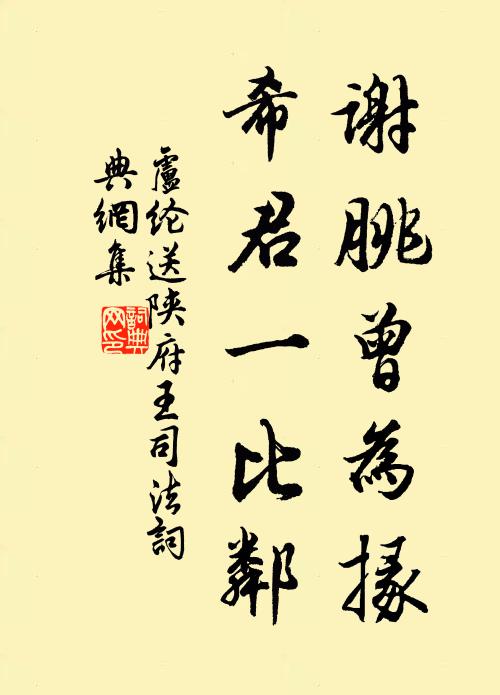 謝朓曾為掾
希君一比鄰
盧纶送陝府王司法詞
典網集
詞典
网印